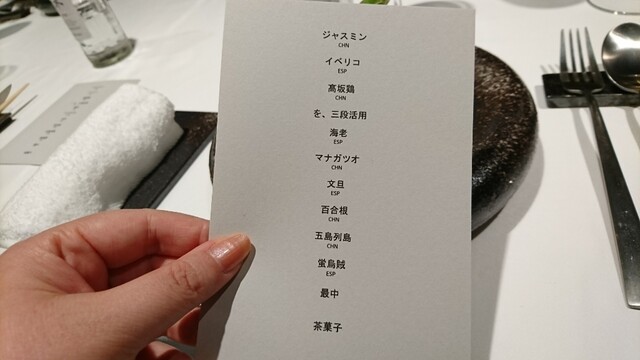 ジャスミン
CHN
イベリコ
ESP
髙坂鶏
CHN
を、三段活用
海老
ESP
マナガツオ
CHN
文旦
ESP
百合根
CHN
五島列島
CHN
蛍烏賊
ESP
最中
茶菓子